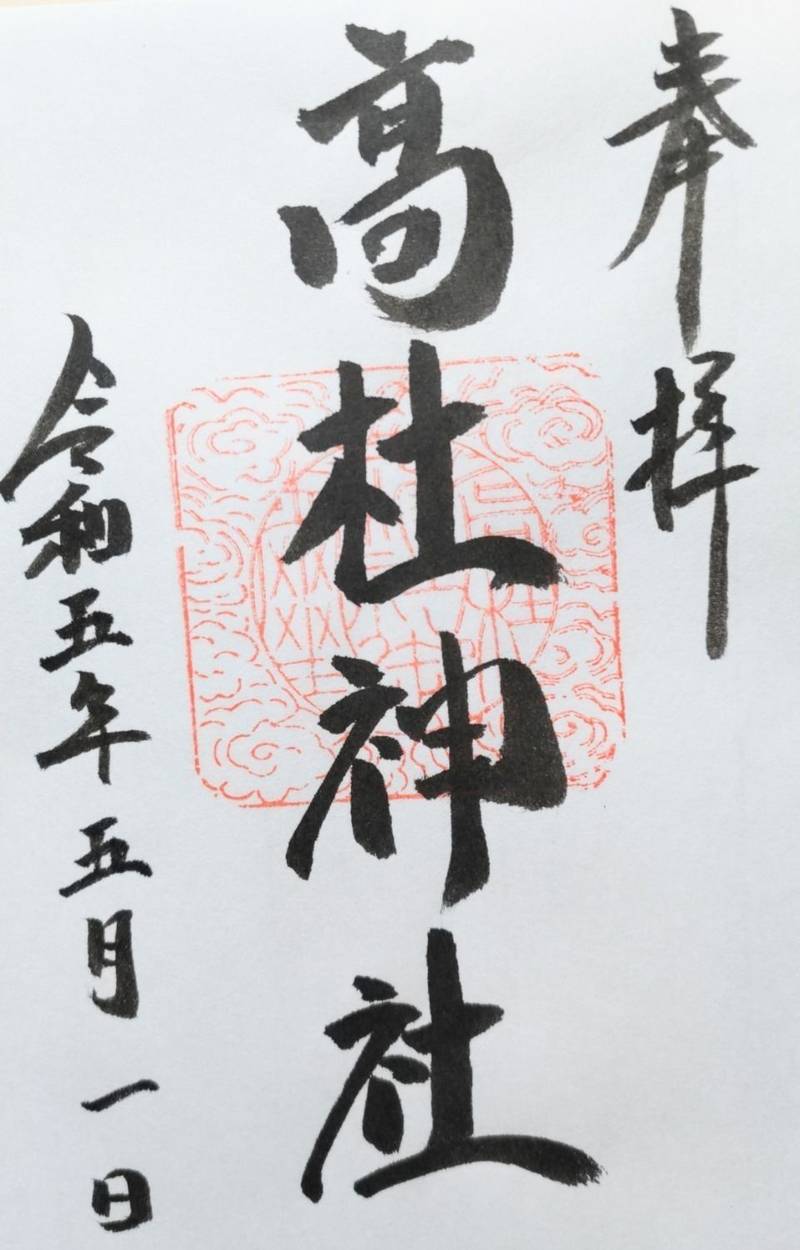 奉拝
高杜神社
令和五年五月一日